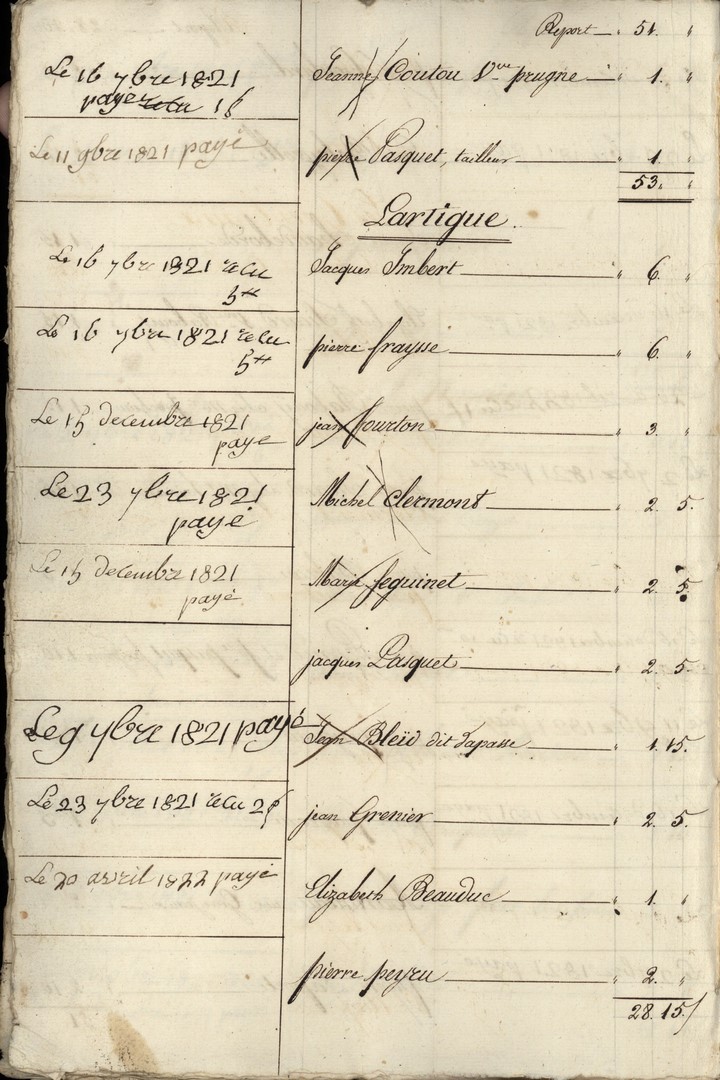 Report — 51. "
Le 16 ybre 1821
payé recu 1f
Jeanne Coutou Vve prugne — " 1. "
Le 11 gbre 1821 payé
pierre Pasquet, tailleur — " 1. "
53. "
Lartigue.
Le 16 ybre 1821 recu
5tt
Jacques Imbert — " 6. "
Le 16 ybre 1821 recu
5tt
pierre fraysse — " 6. "
Le 15 decembre 1821
payé
jean fourton — " 3. "
Le 23 ybre 1821
payé
Michel Clermont — " 2. 5.
Le 15 decembre 1821
payé
Marie Seguinet — " 2. 5.
jacques Pasquet — " 2. 5.
Le 9 ybre 1821 payé
Jean Bleïd dit Lapasse — " 1. 15.
Le 23 ybre 1821 recu 2f
jean Grenier — " 2. 5.
Le 20 avril 1822 payé
Elizabeth Beauduc — " 1. "
pierre peyru — " 2. "
28. 15.